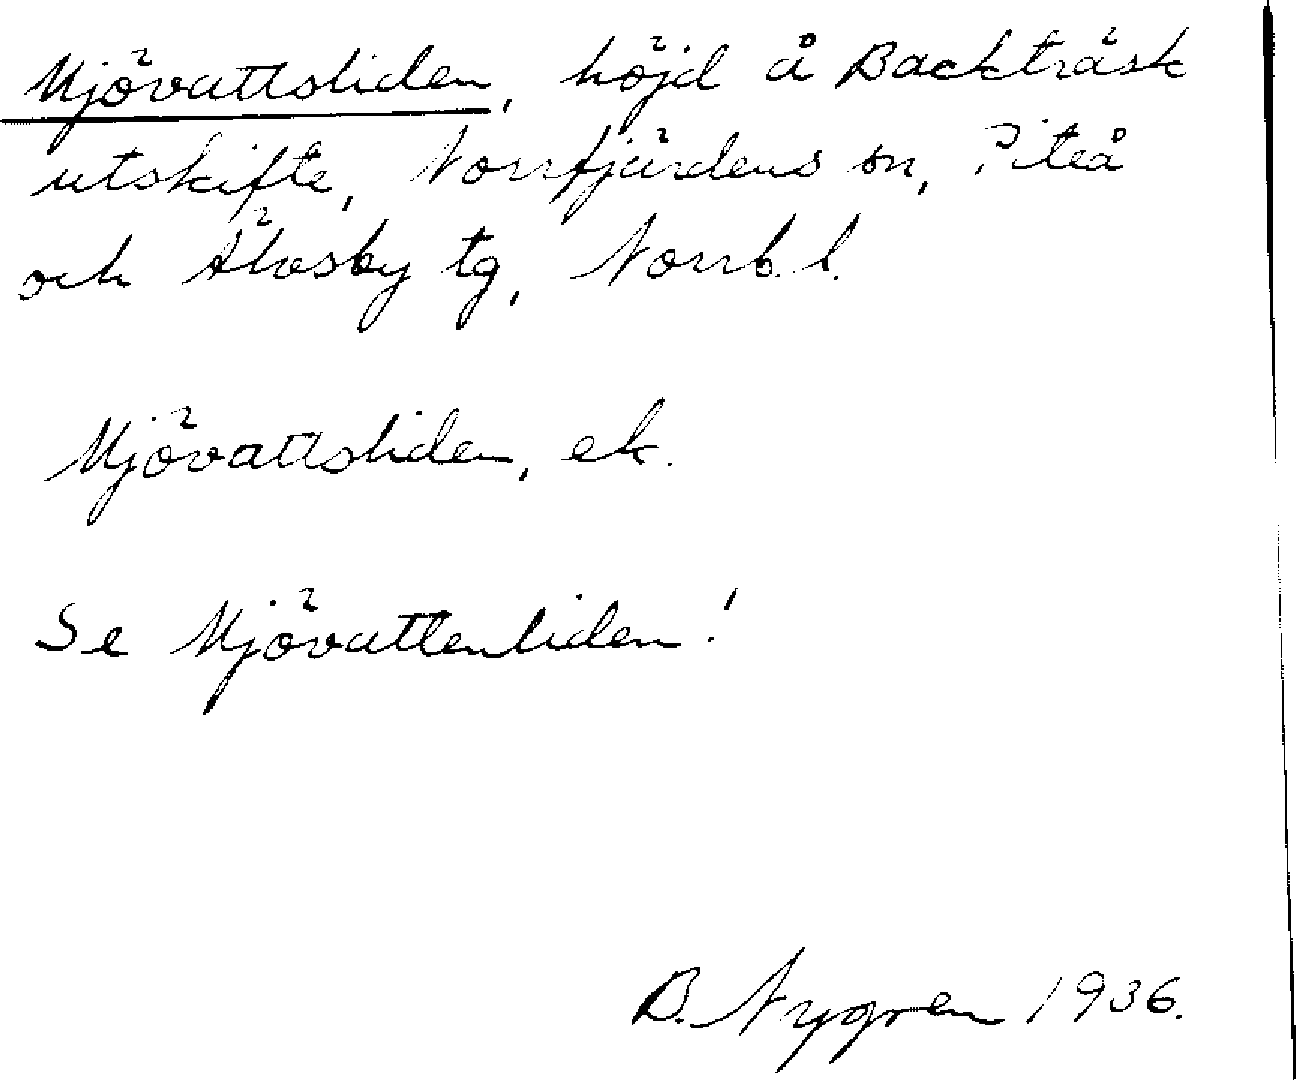 Mjövattsliden, höjd å Backträsk
utskifte, Norrfjärdens sn, Piteå
och Älvsby tg, Norrb. l.
Mjövattsliden, ek.
Se Mjövattenliden!
B. Nygren 1936.